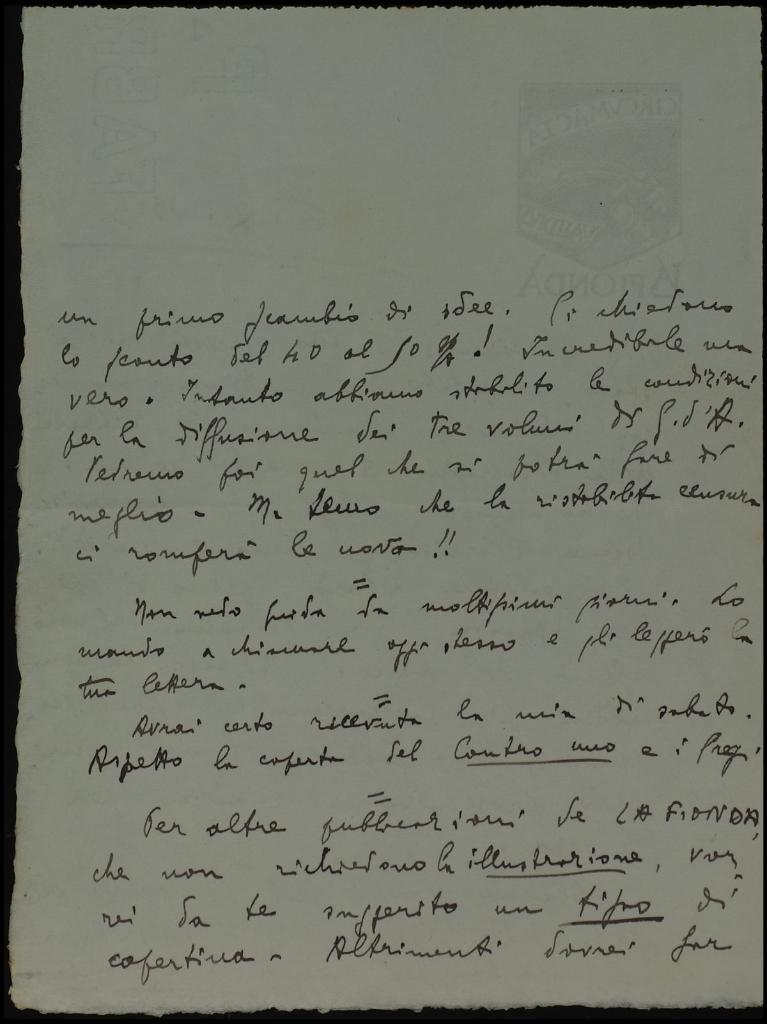 un primo scambio di idee. Ci chiedono
lo sconto del 40 al 50 %! Incredibile ma
vero. Intanto abbiamo stabilito le condizioni
per la diffusione dei tre volumi di G. d'A.
Vedremo poi quel che si potrà fare di
meglio. Ma temo che la ristabilita censura
ci romperà le uova!!
=
Non vedo Guida da moltissimi giorni. Lo
mando a chiamare oggi stesso e gli leggerò la
tua lettera.
=
Avrai certo ricevuta la mia di sabato.
Aspetto la coperta del Contro uno e i fregi.
=
Per altre pubblicazioni de LA FIONDA,
che non richiedono la illustrazione, vor
rei da te suggerito un tipo di
copertina. Altrimenti dovrei far
LA FIONDA